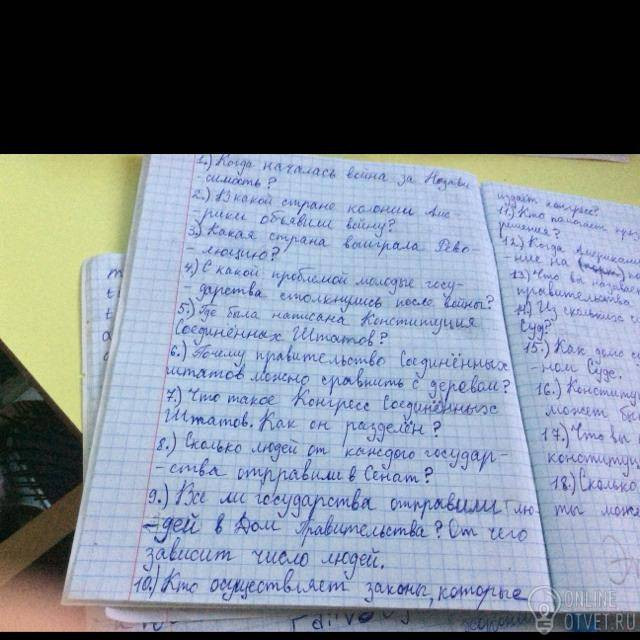 1.) Когда началась война за Незави
- симость?
2.) В какой стране колонии Аме
- рики объявили войну?
3.) Какая страна выиграла Рево-
- люцию?
4.) С какой проблемой молодые госу-
- дарства столкнулись после войны?
5.) Где была написана Конституция
Соединённых Штатов?
6.) Почему правительство Соединённых
штатов можно сравнить с деревом?
7.) Что такое Конгресс Соединённых
Штатов. Как он разделён?
8.) Сколько людей от каждого государ-
- ства отправили в Сенат?
9.) Все ли государства отправили лю-
- дей в Дом Правительства? От чего
зависит число людей.
10.) Кто осуществляет законы, которые
издаёт конгресс?
11.) Кто
решения?
12.) Когда Американ
- ние на
13.) Что вы называе
правительства.
14.) Из скольких
Суд?
15.) Как
- ном Суде.
16.) Конститу
может бы
17.) Что вы
конституци
18.) Сколько
ты може
ONLINE
OTVET.RU